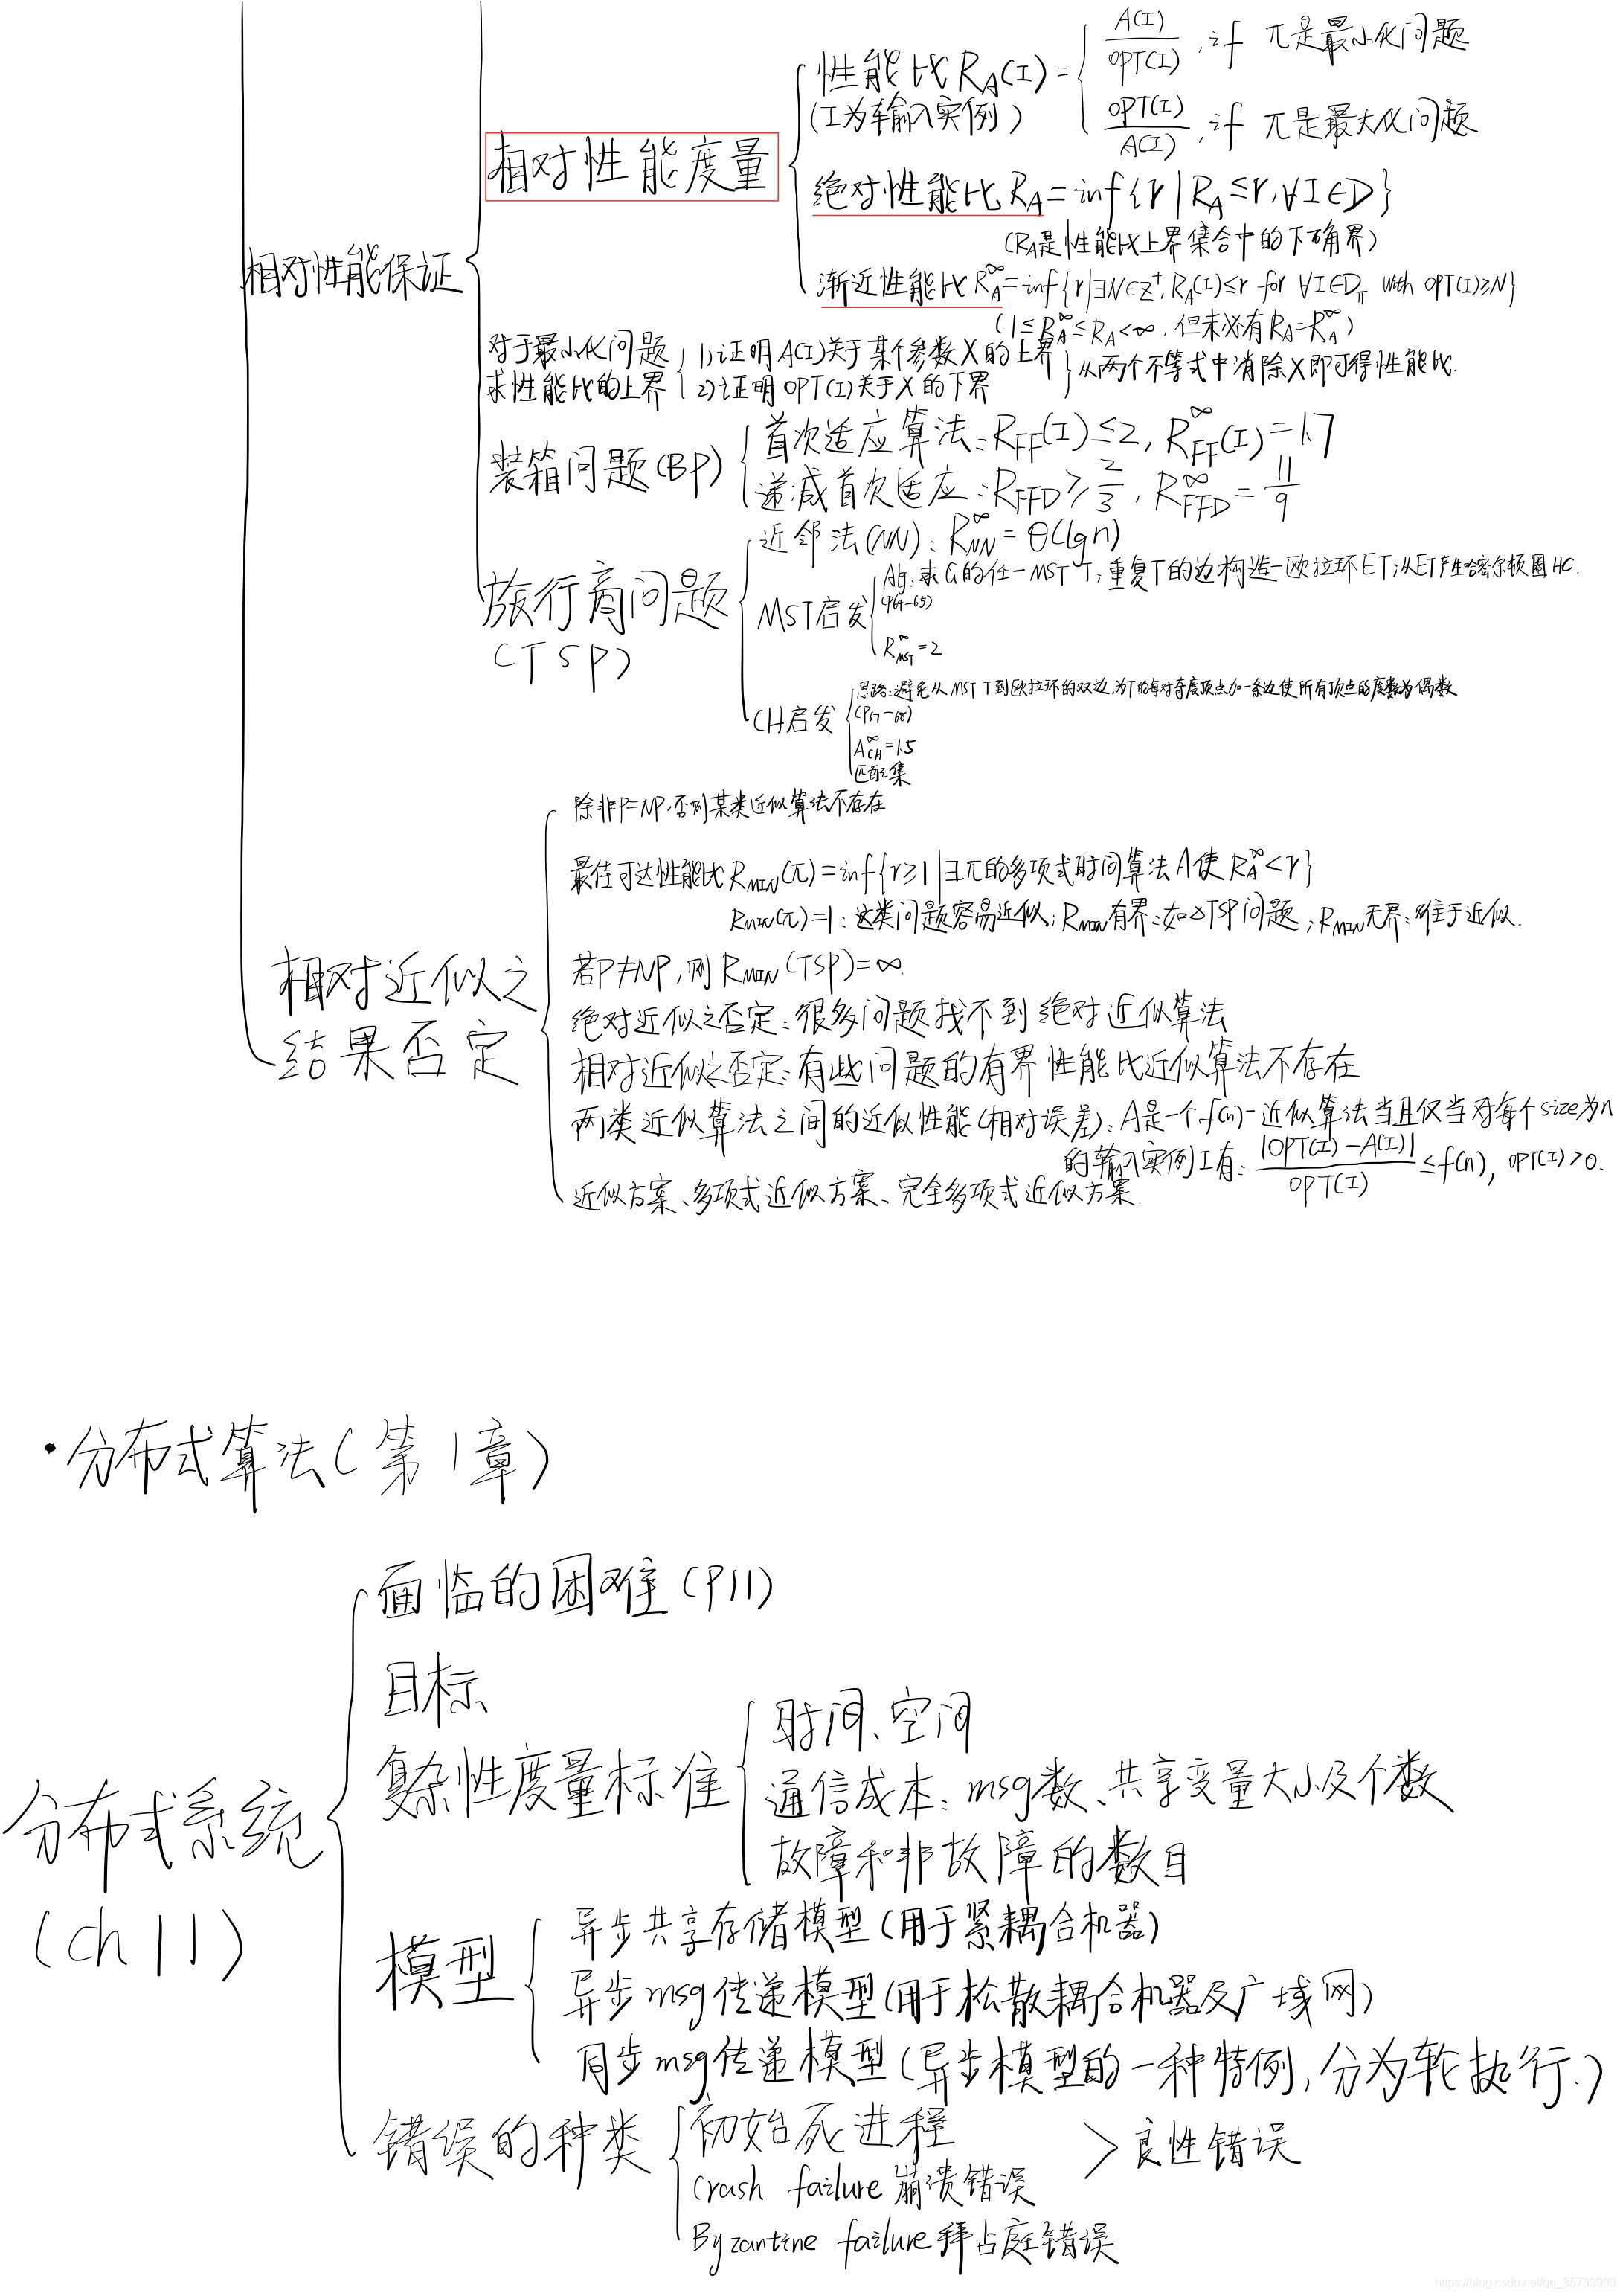 相对性能保证
相对性能度量
性能比 R_A(I) = { A(I)/OPT(I), if π是最小化问题
(I为输入实例) OPT(I)/A(I), if π是最大化问题
绝对性能比 R_A = inf{r | R_A ≤ r, ∀I∈D}
(R_A是性能比上界集合中的下确界)
渐近性能比 R_A^∞ = inf{r | ∃N∈Z⁺, R_A(I) ≤ r for ∀I∈D_π with OPT(I) ≥ N}
(1 ≤ R_A^∞ ≤ R_A < ∞, 但未必有 R_A = R_A^∞)
对于最小化问题
求性能比的上界
1)证明A(I)关于某个参数X的上界
2)证明OPT(I)关于X的下界
从两个不等式中消除X即可得性能比.
装箱问题(BP)
首次适应算法: R_FF(I) ≤ 2, R_FF^∞(I) = 1.7
递减首次适应: R_FFD ≥ 2/3, R_FFD^∞ = 11/9
旅行商问题
(TSP)
近邻法(NN): R_NN^∞ = θ(lgn)
MST启发
Alg: 求G的任一MST T; 重复T的边构造一欧拉环ET; 从ET产生哈密尔顿圈HC.
(P64-65)
R_MST^∞ = 2
CH启发
思路: 避免从MST T到欧拉环的双边, 为T的每对奇度顶点加一条边使所有顶点的度数为偶数
(P67-68)
A_CH^∞ = 1.5
匹配集
相对近似之
结果否定
除非P=NP, 否则某类近似算法不存在
最佳可达性能比 R_MIN(π) = inf{r ≥ 1 | ∃π的多项式时间算法A使 R_A^∞ < r}
R_MIN(π)=1: 这类问题容易近似; R_MIN有界: 如ΔTSP问题; R_MIN无界: 难于近似.
若P≠NP, 则 R_MIN(TSP)=∞.
绝对近似之否定: 很多问题找不到绝对近似算法
相对近似之否定: 有些问题的有界性能比近似算法不存在
两类近似算法之间的近似性能(相对误差): A是一个f(n)-近似算法当且仅当对每个size为n
的输入实例I有: |OPT(I)-A(I)|/OPT(I) ≤ f(n), OPT(I)>0.
近似方案、多项式近似方案、完全多项式近似方案.
·分布式算法(第1章)
分布式系统
(ch11)
面临的困难(P11)
目标
复杂性度量标准
时间、空间
通信成本: msg数、共享变量大小及个数
故障和非故障的数目
模型
异步共享存储模型(用于紧耦合机器)
异步msg传递模型(用于松散耦合机器及广域网)
同步msg传递模型(异步模型的一种特例, 分为轮执行.)
错误的种类
初始死进程
Crash failure 崩溃错误
>良性错误
Byzantine failure 拜占庭错误
https://blog.csdn.net/qq_35739903